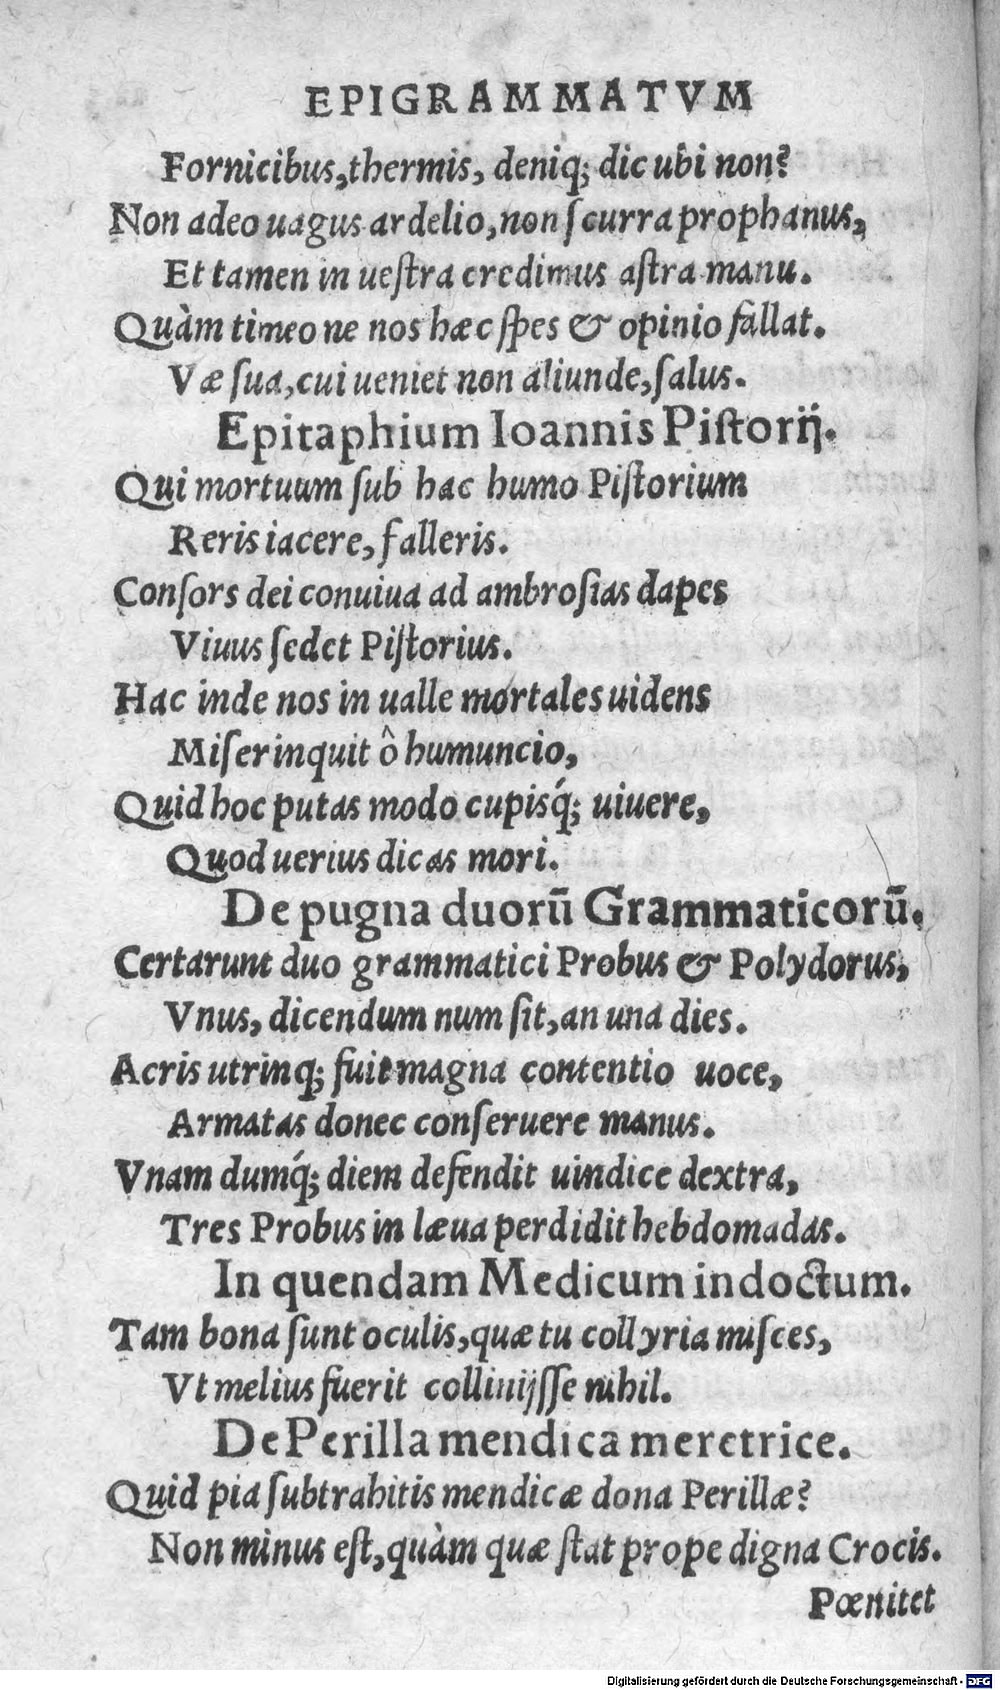 EPIGRAMMATVM
Fornicibus,thermis, deniq; dic ubi non?
Non adeo uagus ardelio,non ſcurra prophanus,
Et tamen in ueſtra credimus aſtra manu.
Quàm timeo ne nos hæc ſpes & opinio fallat.
Væ ſua,cui ueniet non aliunde,ſalus.
Epitaphium Ioannis Piſtorĳ.
Qui mortuum ſub hac humo Piſtorium
Reris iacere, falleris.
Conſors dei conuiua ad ambroſias dapes
Viuus ſedet Piſtorius.
Hac inde nos in ualle mortales uidens
Miſer inquit ô humuncio,
Quid hoc putas modo cupisq́; uiuere,
Quod uerius dicas mori.
De pugna duorũ Grammaticorũ.
Certarunt duo grammatici Probus & Polydorus,
Vnus, dicendum num ſit,an una dies.
Acris utrinq; fuit magna contentio uoce,
Armatas donec conſeruere manus.
Vnam dumq́; diem defendit uindice dextra,
Tres Probus in læua perdidit hebdomadas.
In quendam Medicum indoctum.
Tam bona ſunt oculis,quæ tu collyria miſces,
Vt melius fuerit colliniĳſſe nihil.
De Perilla mendica meretrice.
Quid pia ſubtrahitis mendicæ dona Perillæ?
Non minus eſt,quàm quæ ſtat prope digna Crocis.
Pœnitet
Digitalisierung gefördert durch die Deutsche Forschungsgemeinschaft - DFG